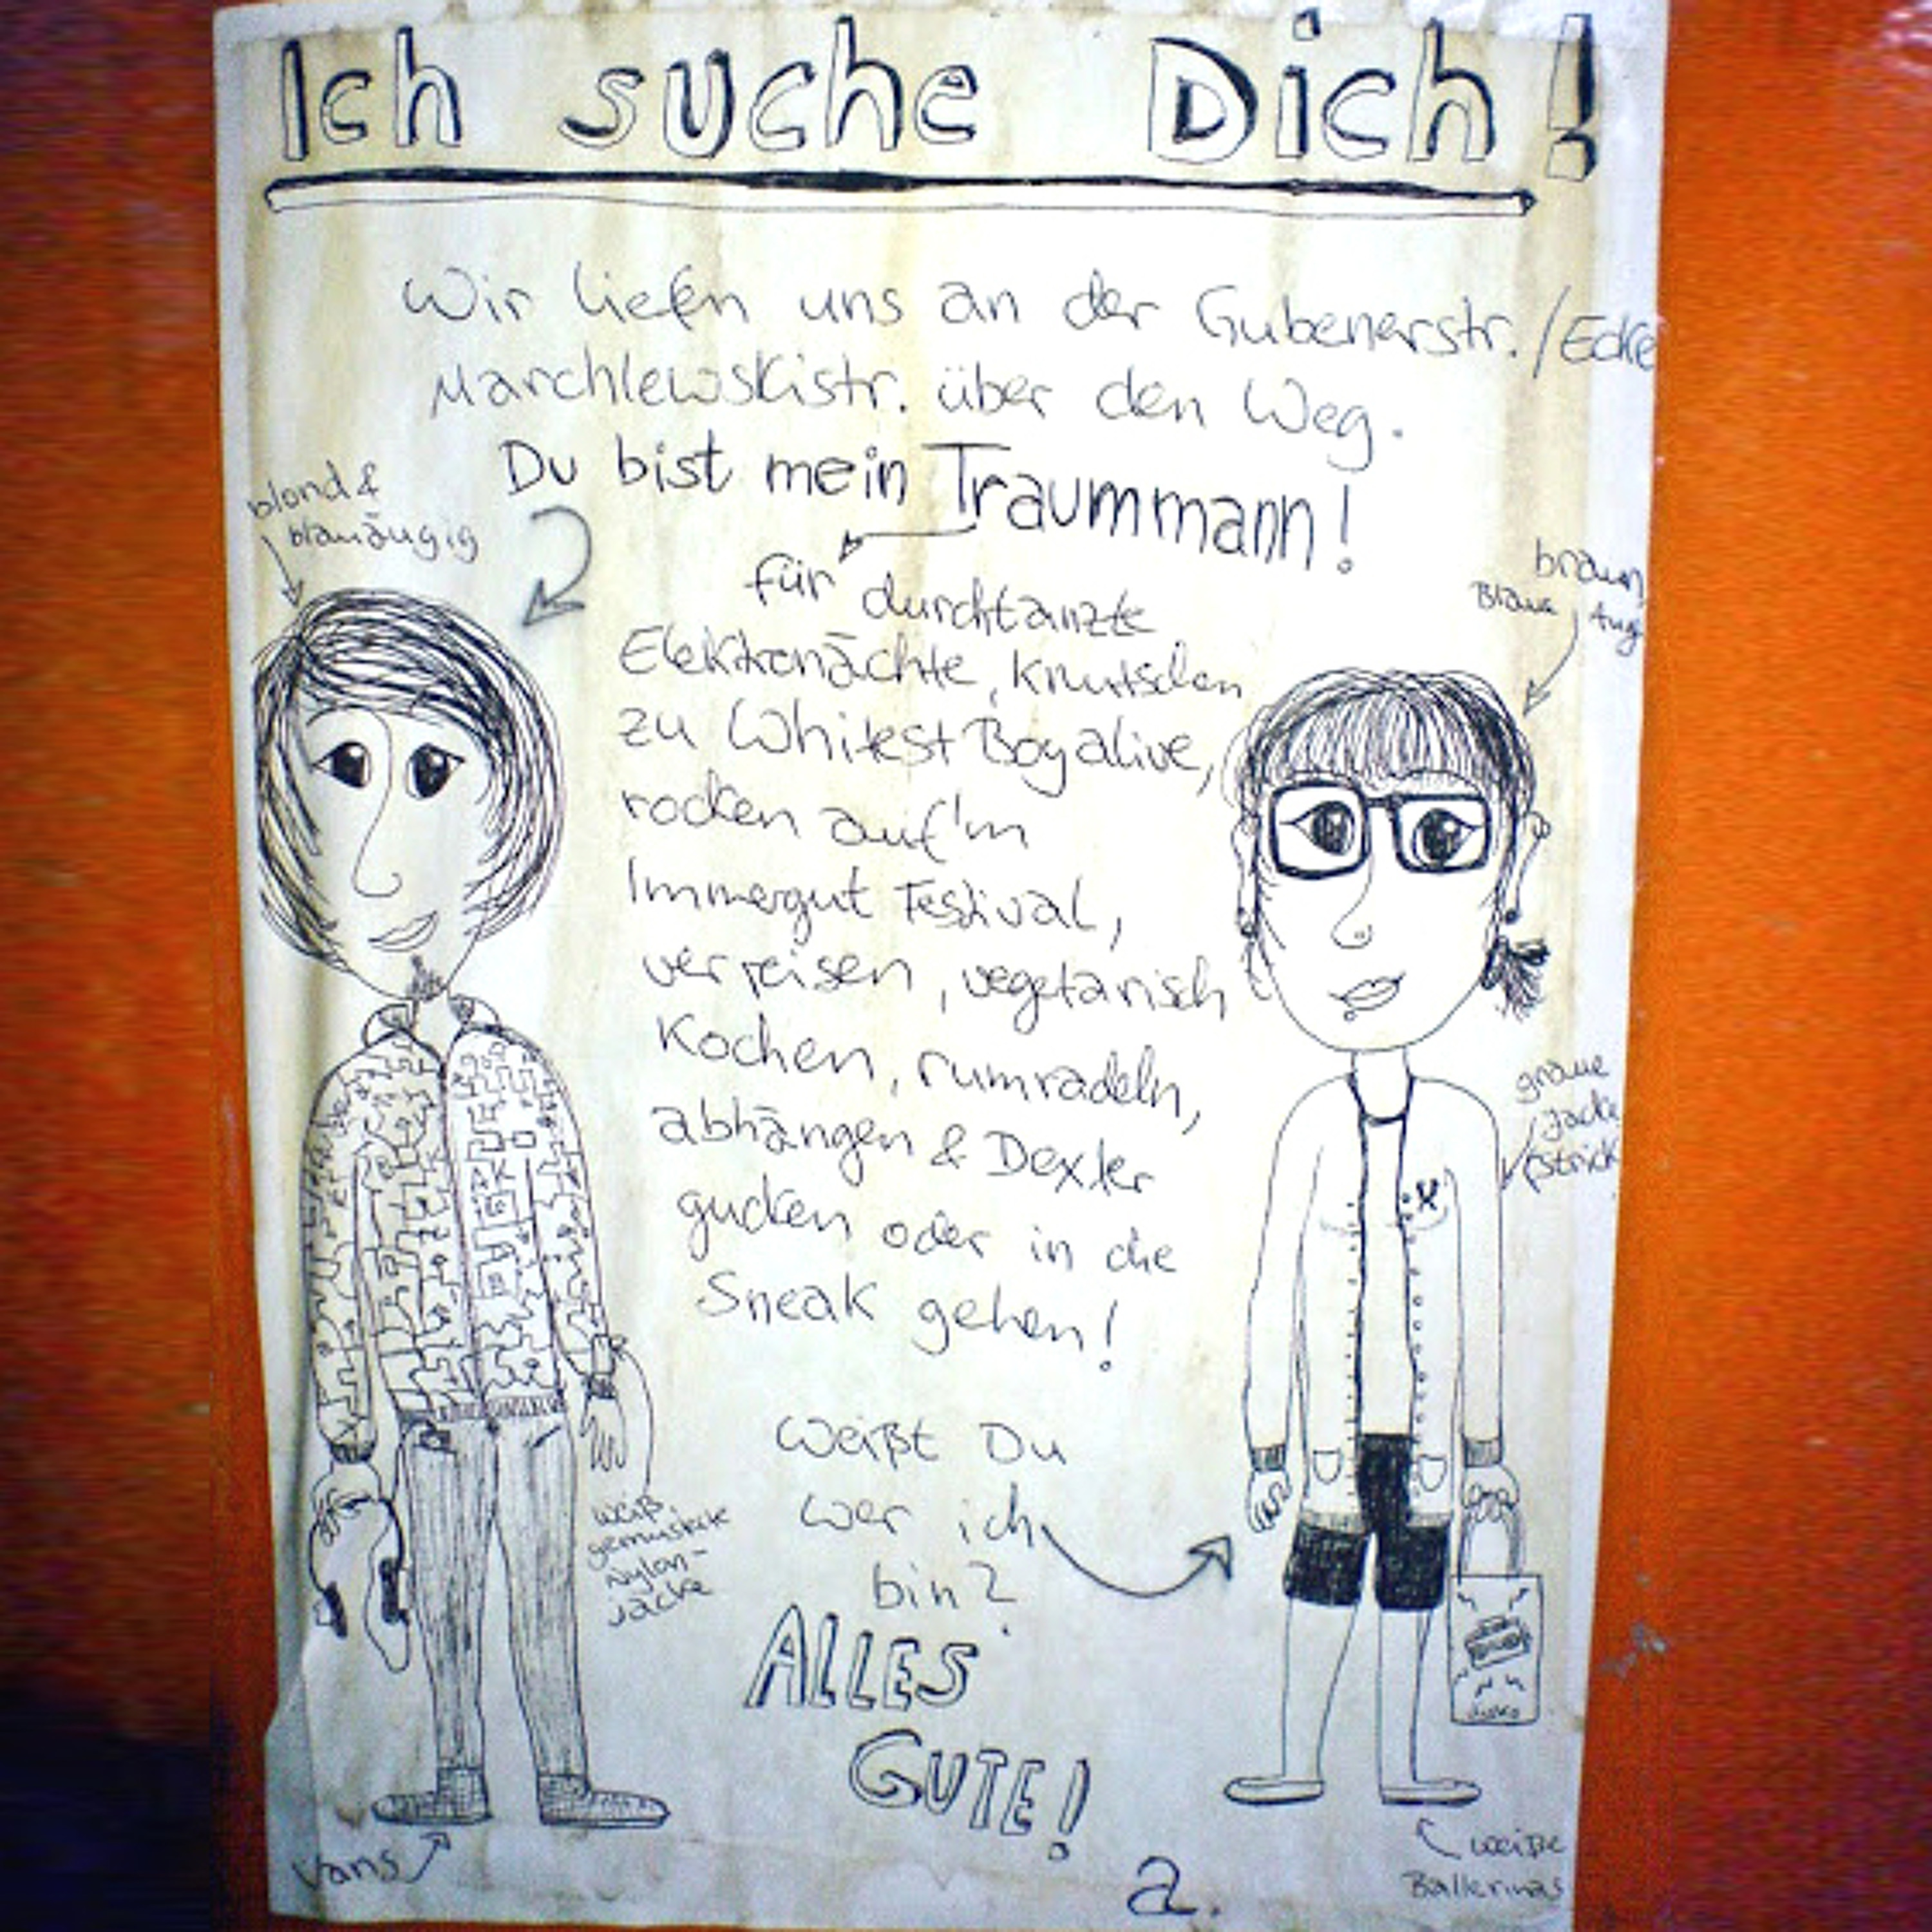 Ich suche Dich!
Wir liefen uns an der Gubenerstr./Ecke
Marchlewskistr. über den Weg.
Du bist mein Traummann!
blond &
blauäugig
für durchtanzte
Elektronächte, knutschen
zu Whitest Boy alive,
rocken auf'm
Immergut Festival,
verreisen, vegetarisch
Kochen, rumradeln,
abhängen & Dexter
gucken oder in die
Sneak gehen!
braun
Blaue Aug
graue
Jacke
(Strick
weiß,
gemusterte
Nylon-
jacke
Weißt Du
wer ich
bin?
ALLES
GUTE!
a.
Vans
weiße
Ballerinas